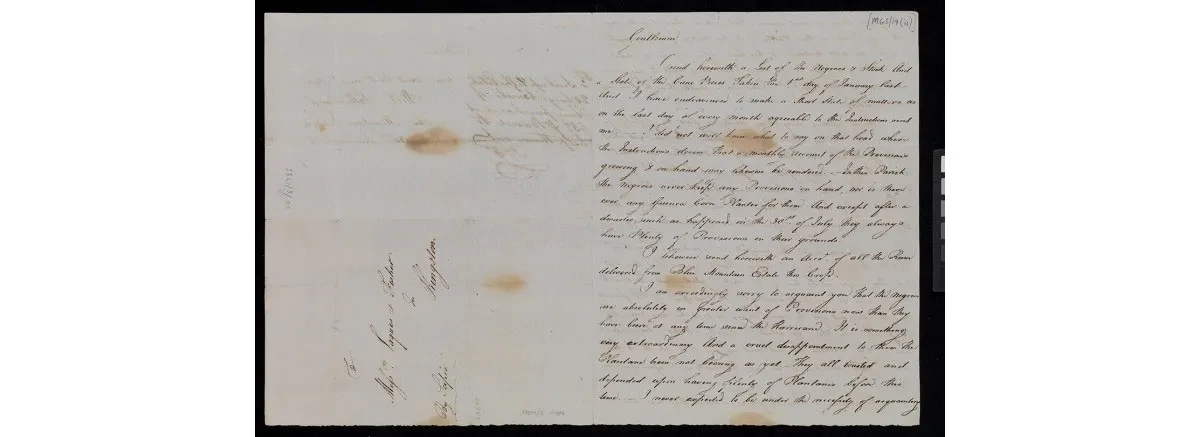 [MGS/14(11)]
Gentlemen
I send herewith a List of the Negroes & Stock And
a State of the Cane Pieces Taken the 1st day of January last
And I have endeavoured to make a Short State of matters as
on the last day of every month agreeable to the Instructions sent
me — I did not well know what to say on that head where
the Instructions desires that a monthly account of the Provisions
growing & on hand may likewise be rendered — In this Parish
the Negroes never keep any Provisions on hand, nor is there
ever any Guinea Corn Planted for them And except after a
disaster such as happened on the 30th of July they always
have Plenty of Provisions in their grounds
I likewise send herewith an Acct. of all the Rum
delivered from Blue Mountain Estate this Crop.
I am exceedingly sorry to acquaint you that the negroes
are absolutely in Greater want of Provisions now than they
have been at any time since the Hurricane. It is something
very extraordinary And a cruel disappointment to them The
Plantane trees not bearing as yet. They all trusted and
depended upon having plenty of Plantanes before this
time — I never expected to be under the necessity of acquainting
To
Messrs.
&
Kingston